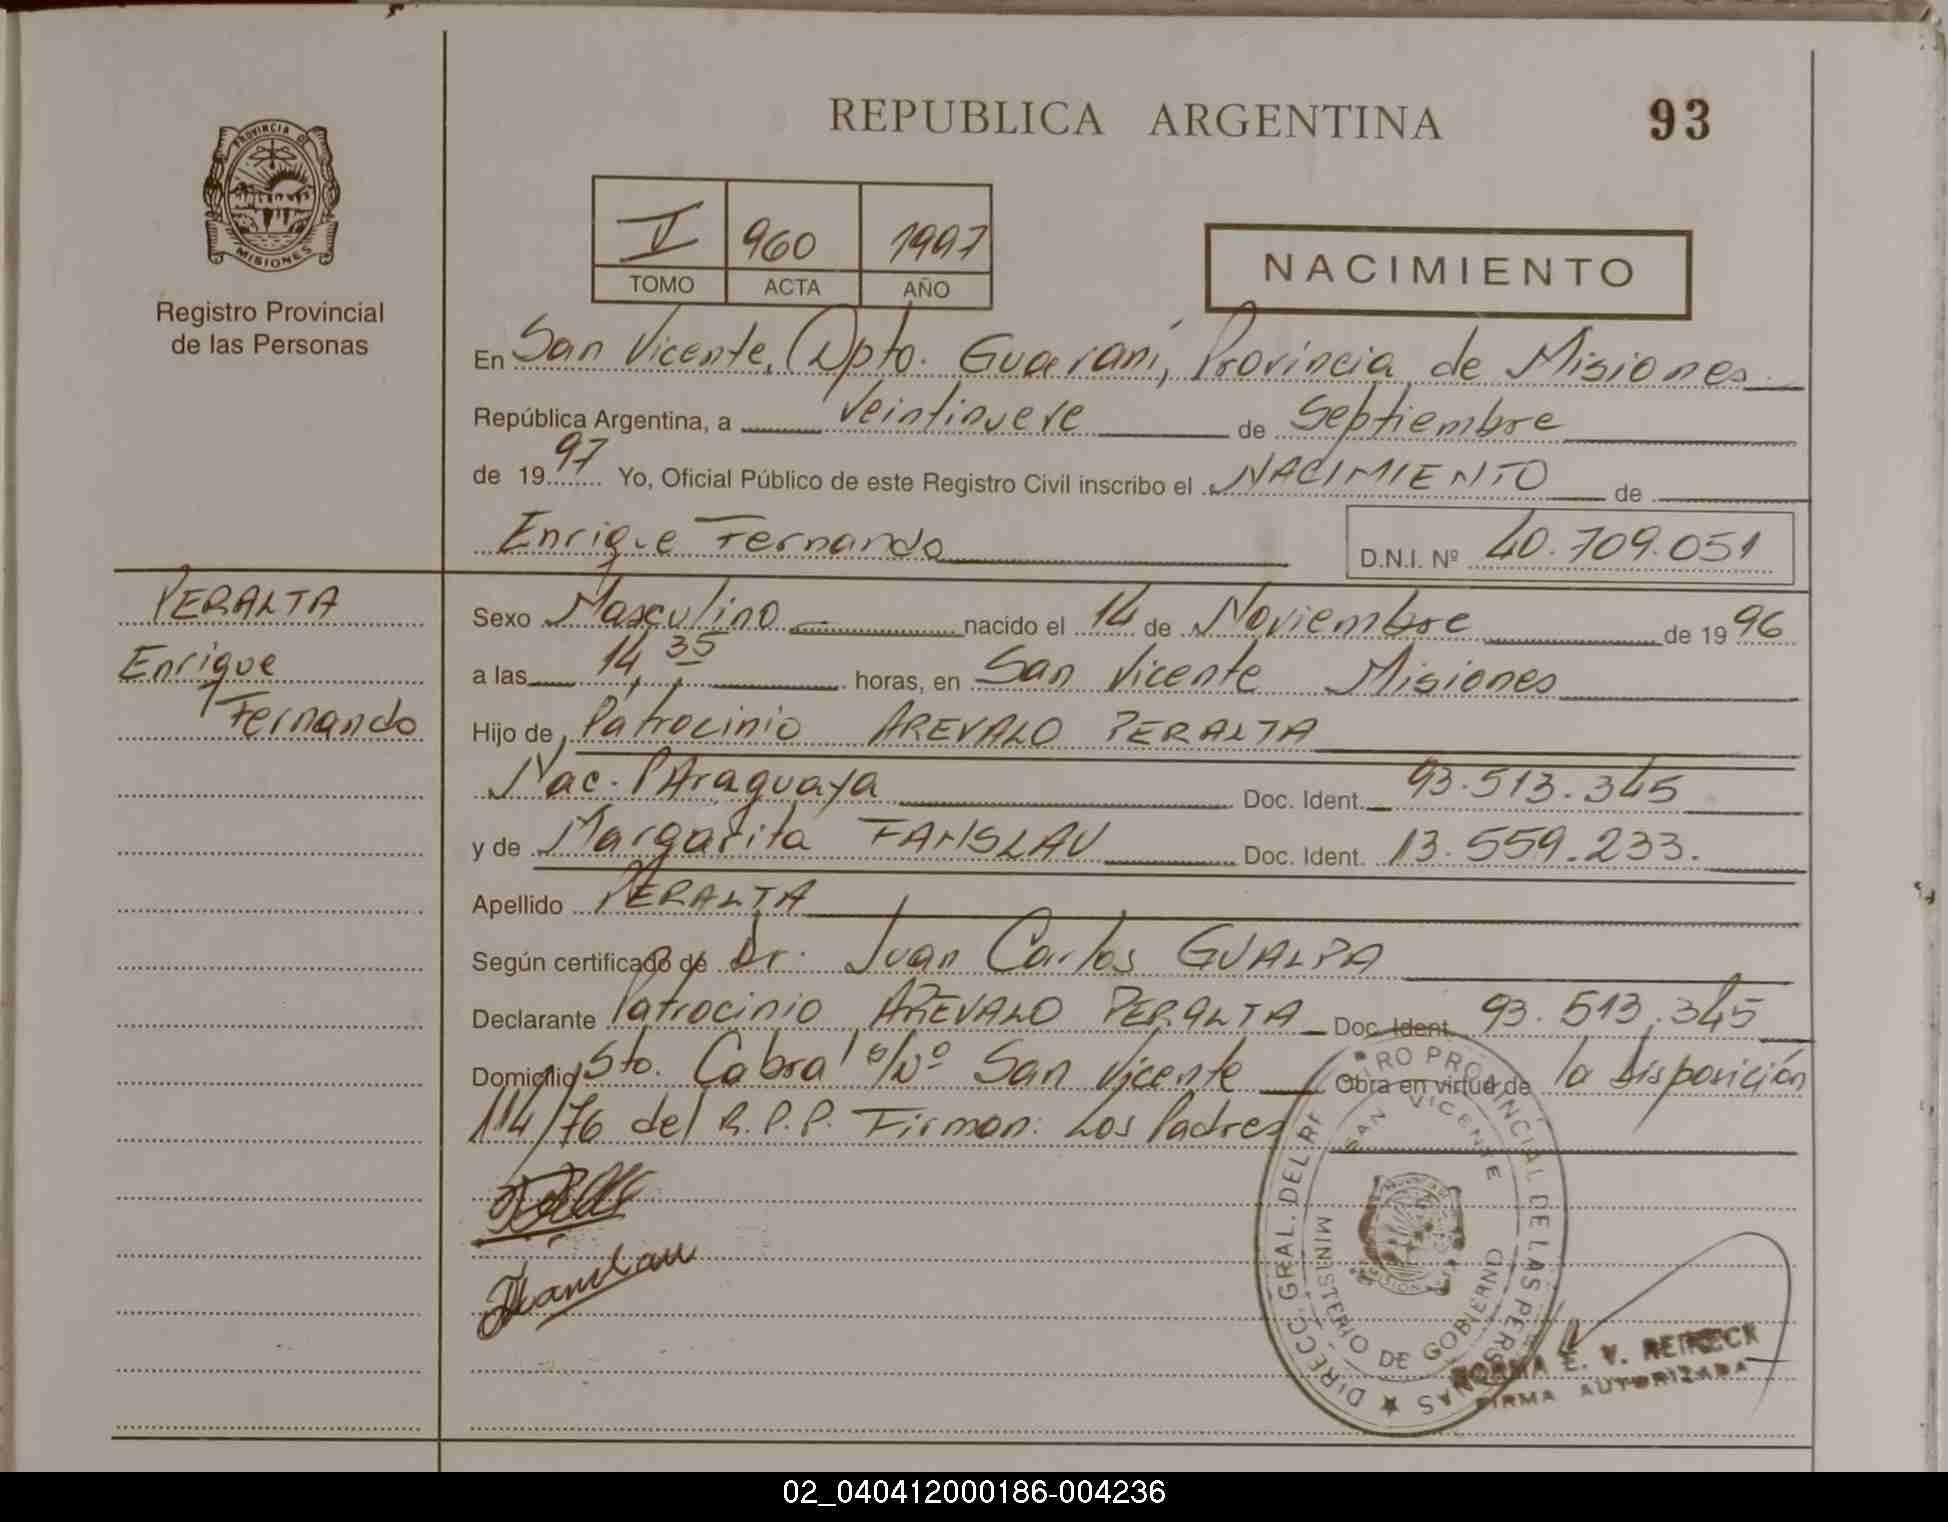 REPUBLICA ARGENTINA
93
PROVINCIA DE
MISIONES
Registro Provincial
de las Personas
V 960 1997
TOMO ACTA AÑO
NACIMIENTO
En San Vicente, Dpto. Guaraní, Provincia de Misiones
República Argentina, a Veintinueve de Septiembre
de 1997 Yo, Oficial Público de este Registro Civil inscribo el NACIMIENTO de
Enrique Fernando D.N.I. Nº 40.709.051
PERALTA
Enrique
Fernando
Sexo Masculino nacido el 14 de Noviembre de 1996
a las 14,35 horas, en San Vicente Misiones
Hijo de Patrocinio AREVALO PERALTA
Nac. PAraguaya Doc. Ident. 93.513.345
y de Margarita Doc. Ident. 13.559.233.
Apellido PERALTA
Según certificado de Dr. Juan Carlos GUALPA
Declarante Patrocinio AREVALO PERALTA Doc. Ident. 93.513.345
Domicilio Sto. Cabral s/Nº San Vicente Obra en virtud de la disposición
114/76 del R.P.P. Firman: Los Padres
DIRECC. GRAL. DEL RE RO PROVINCIAL DE LAS PERSONAS
SAN VICENTE
MINISTERIO DE GOBIERNO
NORMA E. V.
FIRMA AUTORIZADA
02_040412000186-004236